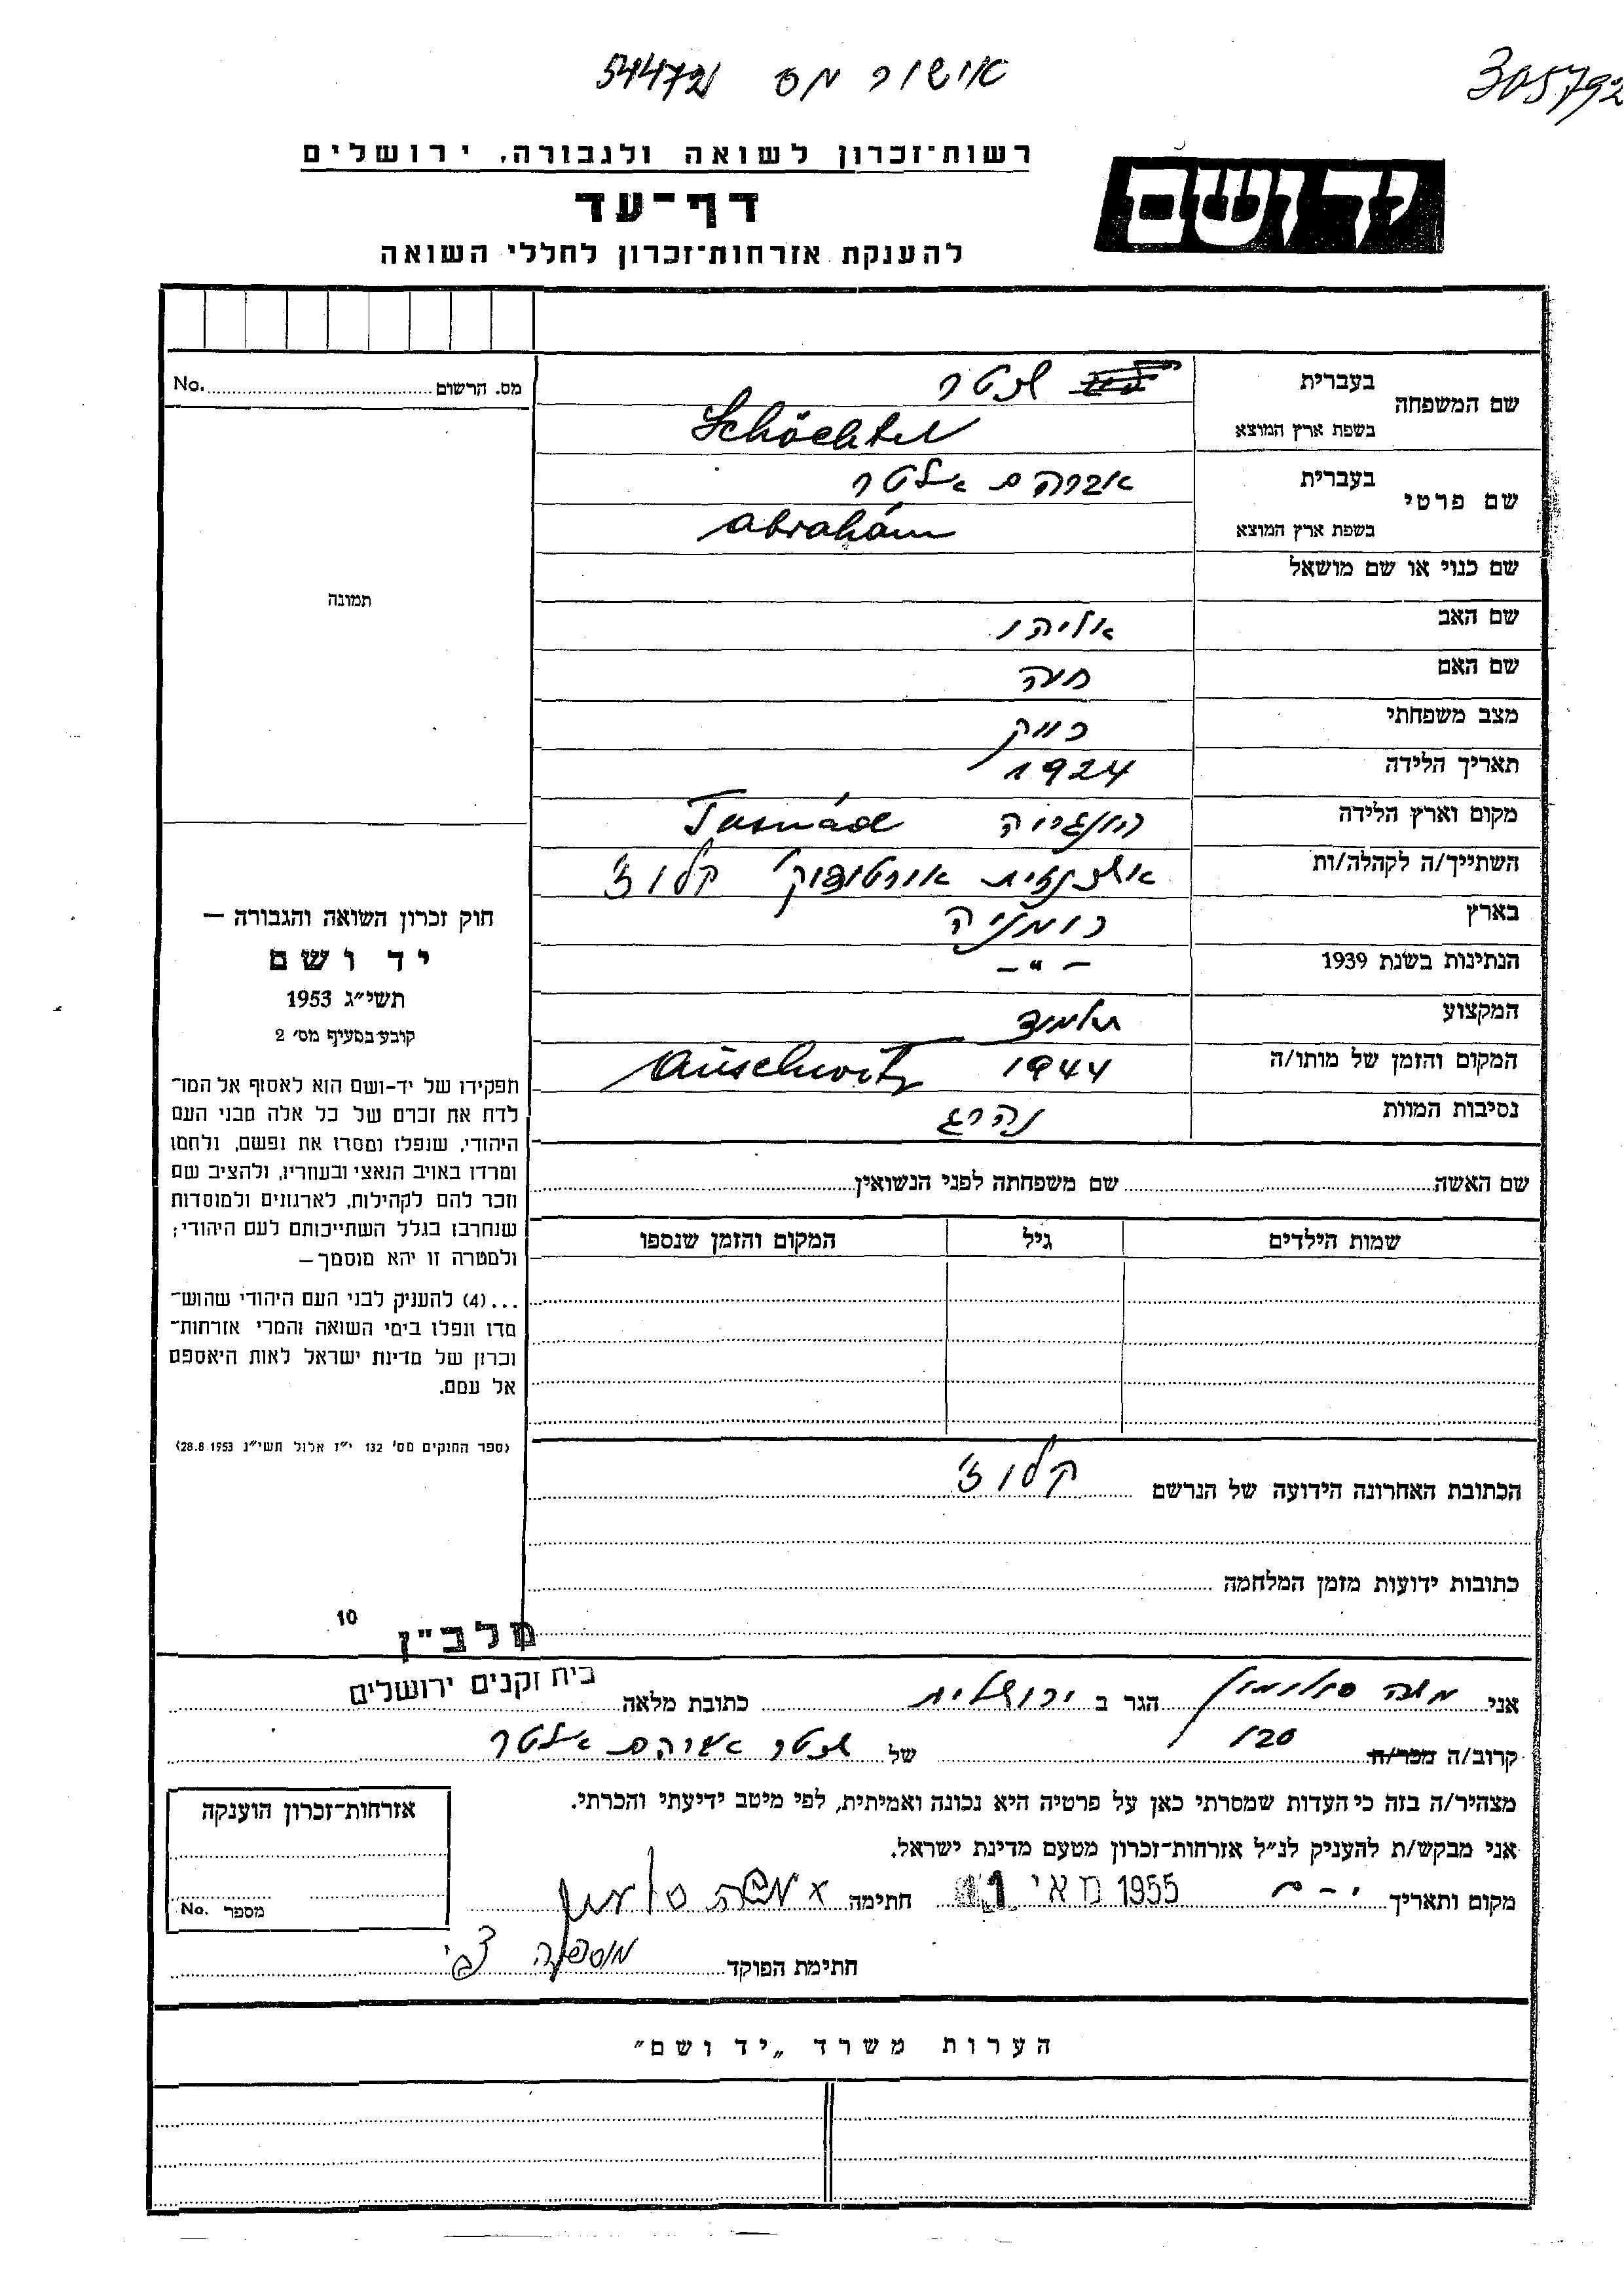 אישור מס 54472
305792
רשות־זכרון לשואה ולגבורה, ירושלים
יד ושם
דף־עד
להענקת אזרחות־זכרון לחללי השואה
מס. הרשום No.
שם המשפחה
בעברית שכטר
בשפת ארץ המוצא Schächter
שם פרטי
בעברית אברהם אלטר
בשפת ארץ המוצא Abrahám
שם כנוי או שם מושאל
תמונה
שם האב אליהו
שם האם חיה
מצב משפחתי רווק
תאריך הלידה 1924
מקום וארץ הלידה הונגריה Tasnád
השתייך/ה לקהלה/ות אשכנזית אורטודוקי קלוז'
בארץ רומניה
הנתינות בשנת 1939 -"-
המקצוע תלמיד
המקום והזמן של מותו/ה 1944 Auschwitz
נסיבות המוות נהרג
חוק זכרון השואה והגבורה —
יד ושם
תשי״ג 1953
קובע בסעיף מס׳ 2
תפקידו של יד-ושם הוא לאסוף אל המו־
לדת את זכרם של כל אלה מבני העם
היהודי, שנפלו ומסרו את נפשם, נלחמו
ומרדו באויב הנאצי ובעוזריו, ולהציב שם
וזכר להם לקהילות, לארגונים ולמוסדות
שנחרבו בגלל השתייכותם לעם היהודי;
ולמטרה זו יהא מוסמך—
...(4) להעניק לבני העם היהודי שהוש־
מדו ונפלו בימי השואה והמרי אזרחות־
זכרון של מדינת ישראל לאות היאספם
אל עמם.
(ספר החוקים מס׳ 132 י״ז אלול תשי״ג 28.8.1953)
שם האשה שם משפחתה לפני הנשואין
שמות הילדים גיל המקום והזמן שנספו
הכתובת האחרונה הידועה של הנרשם קלוז'
כתובות ידועות מזמן המלחמה
10
מלב״ן
בית זקנים ירושלים
אני משה סולומון הגר ב ירושלים כתובת מלאה
קרוב/ה מכר/ה של שכטר אברהם אלטר
מצהיר/ה בזה כי העדות שמסרתי כאן על פרטיה היא נכונה ואמיתית, לפי מיטב ידיעתי והכרתי.
אני מבקש/ת להעניק לנ״ל אזרחות־זכרון מטעם מדינת ישראל.
מקום ותאריך י-ם 11 מאי 1955 חתימה x משה סולומון
אזרחות־זכרון הוענקה
מספר No.
חתימת הפוקד
הערות משרד „יד ושם״